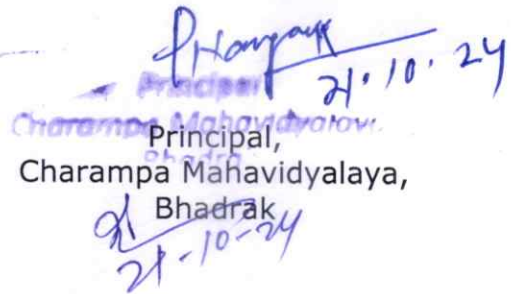 21.10.24
Principal
Charampa Mahavidyalaya
Principal,
Bhadrak
Charampa Mahavidyalaya,
Bhadrak
21-10-24